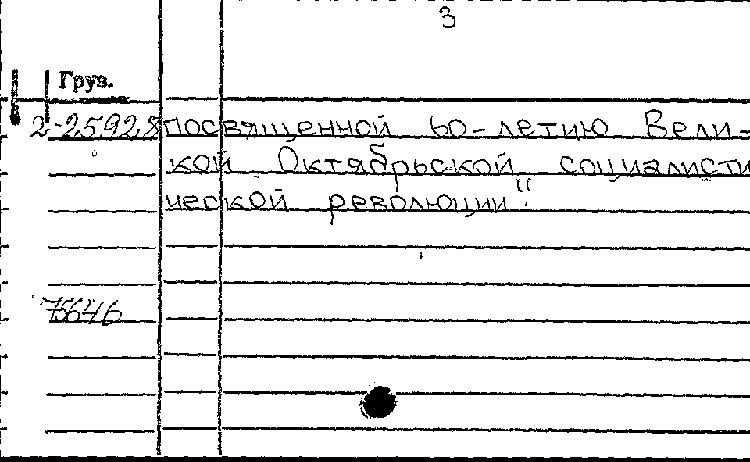 3
Груз.
2-25928 посвященной 60-летию Вели-
кой Октябрьской социалисти
ческой революции"
75646